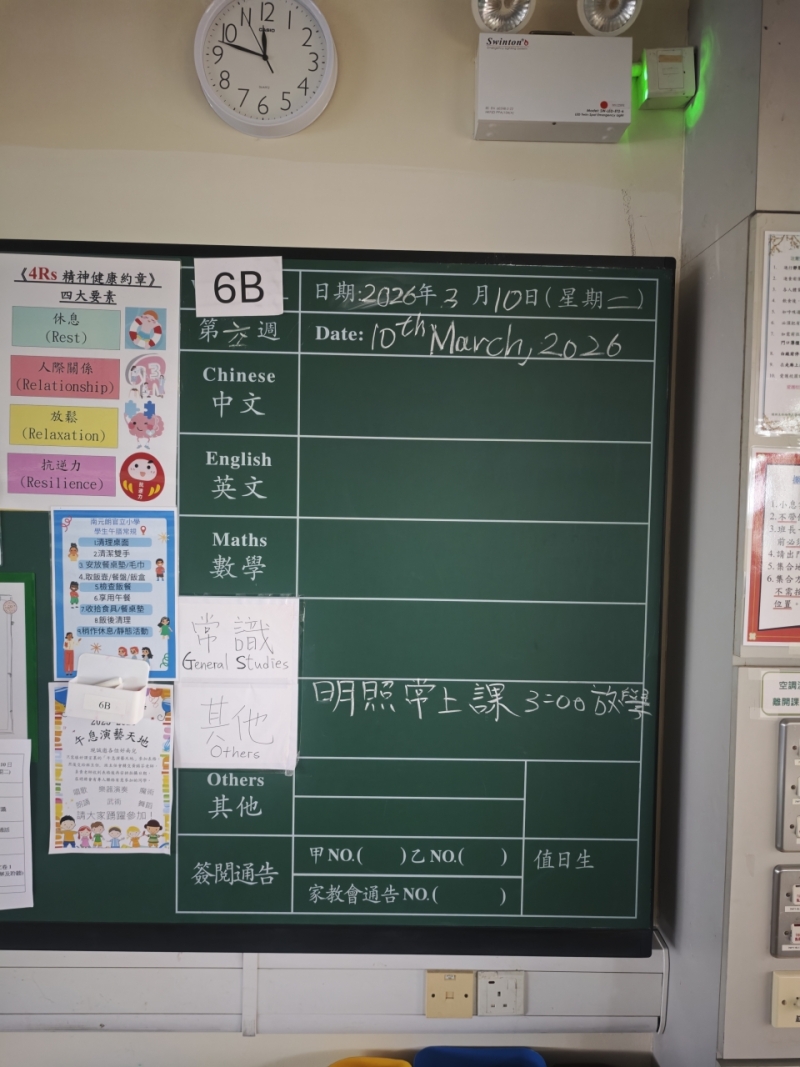 12
1
2
3
4
5
6
7
8
9
10
11
CASIO
Swinton
《4Rs 精神健康約章》
四大要素
休息
(Rest)
人際關係
(Relationship)
放鬆
(Relaxation)
抗逆力
(Resilience)
抗逆力
學生午膳常規
1清理桌面
2清潔雙手
3安放餐桌墊/毛巾
4.取飯壺/餐盤/飯盒
5檢查飯餐
6.享用午餐
7收拾食具/餐桌墊
8飯後清理
9稍作休息/靜態活動
6B
午息演藝天地
唱歌 樂器演奏 魔術
說話 武術 舞蹈
請大家踴躍參加!
6B
日期:2026年3月10日(星期二)
第六週
Date: 10th March, 2026
Chinese
中文
English
英文
Maths
數學
常識
General Studies
其他
Others
明照常上課 3:00放學
Others
其他
簽閱通告
甲NO.( )乙NO.( )
家教會通告NO.( )
值日生